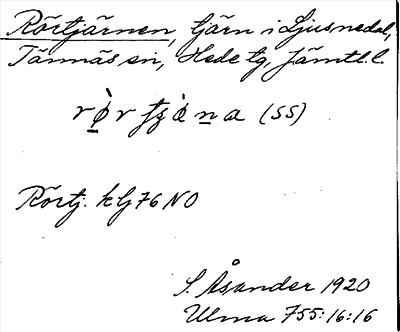 Rörtjärnen, tjärn i Ljusnedal,
Tännäs sn, Hede tg, Jämtl. l.
(SS)
Rörtj. kbg 76 NO
S. Åsander 1920
Ulma 755:16:16